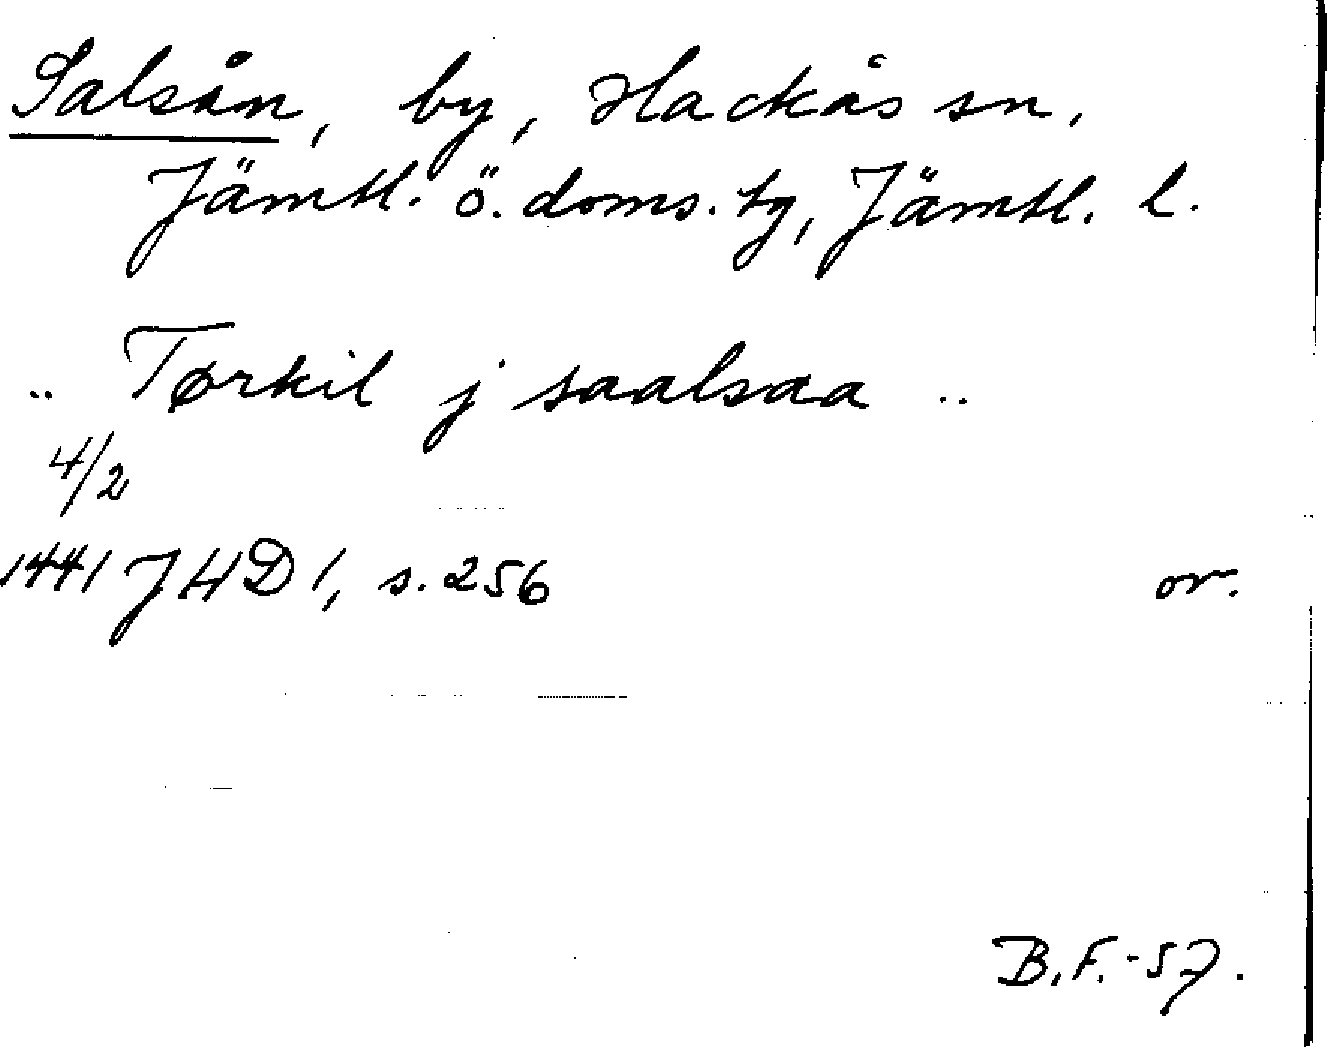 Salsån, by, Hackås sn,
Jämtl. ö. doms. tg, Jämtl. l.
.. Tørkil j saalsaa ..
4/2
1441 JHD 1, s. 256 or.
B.F. -57.